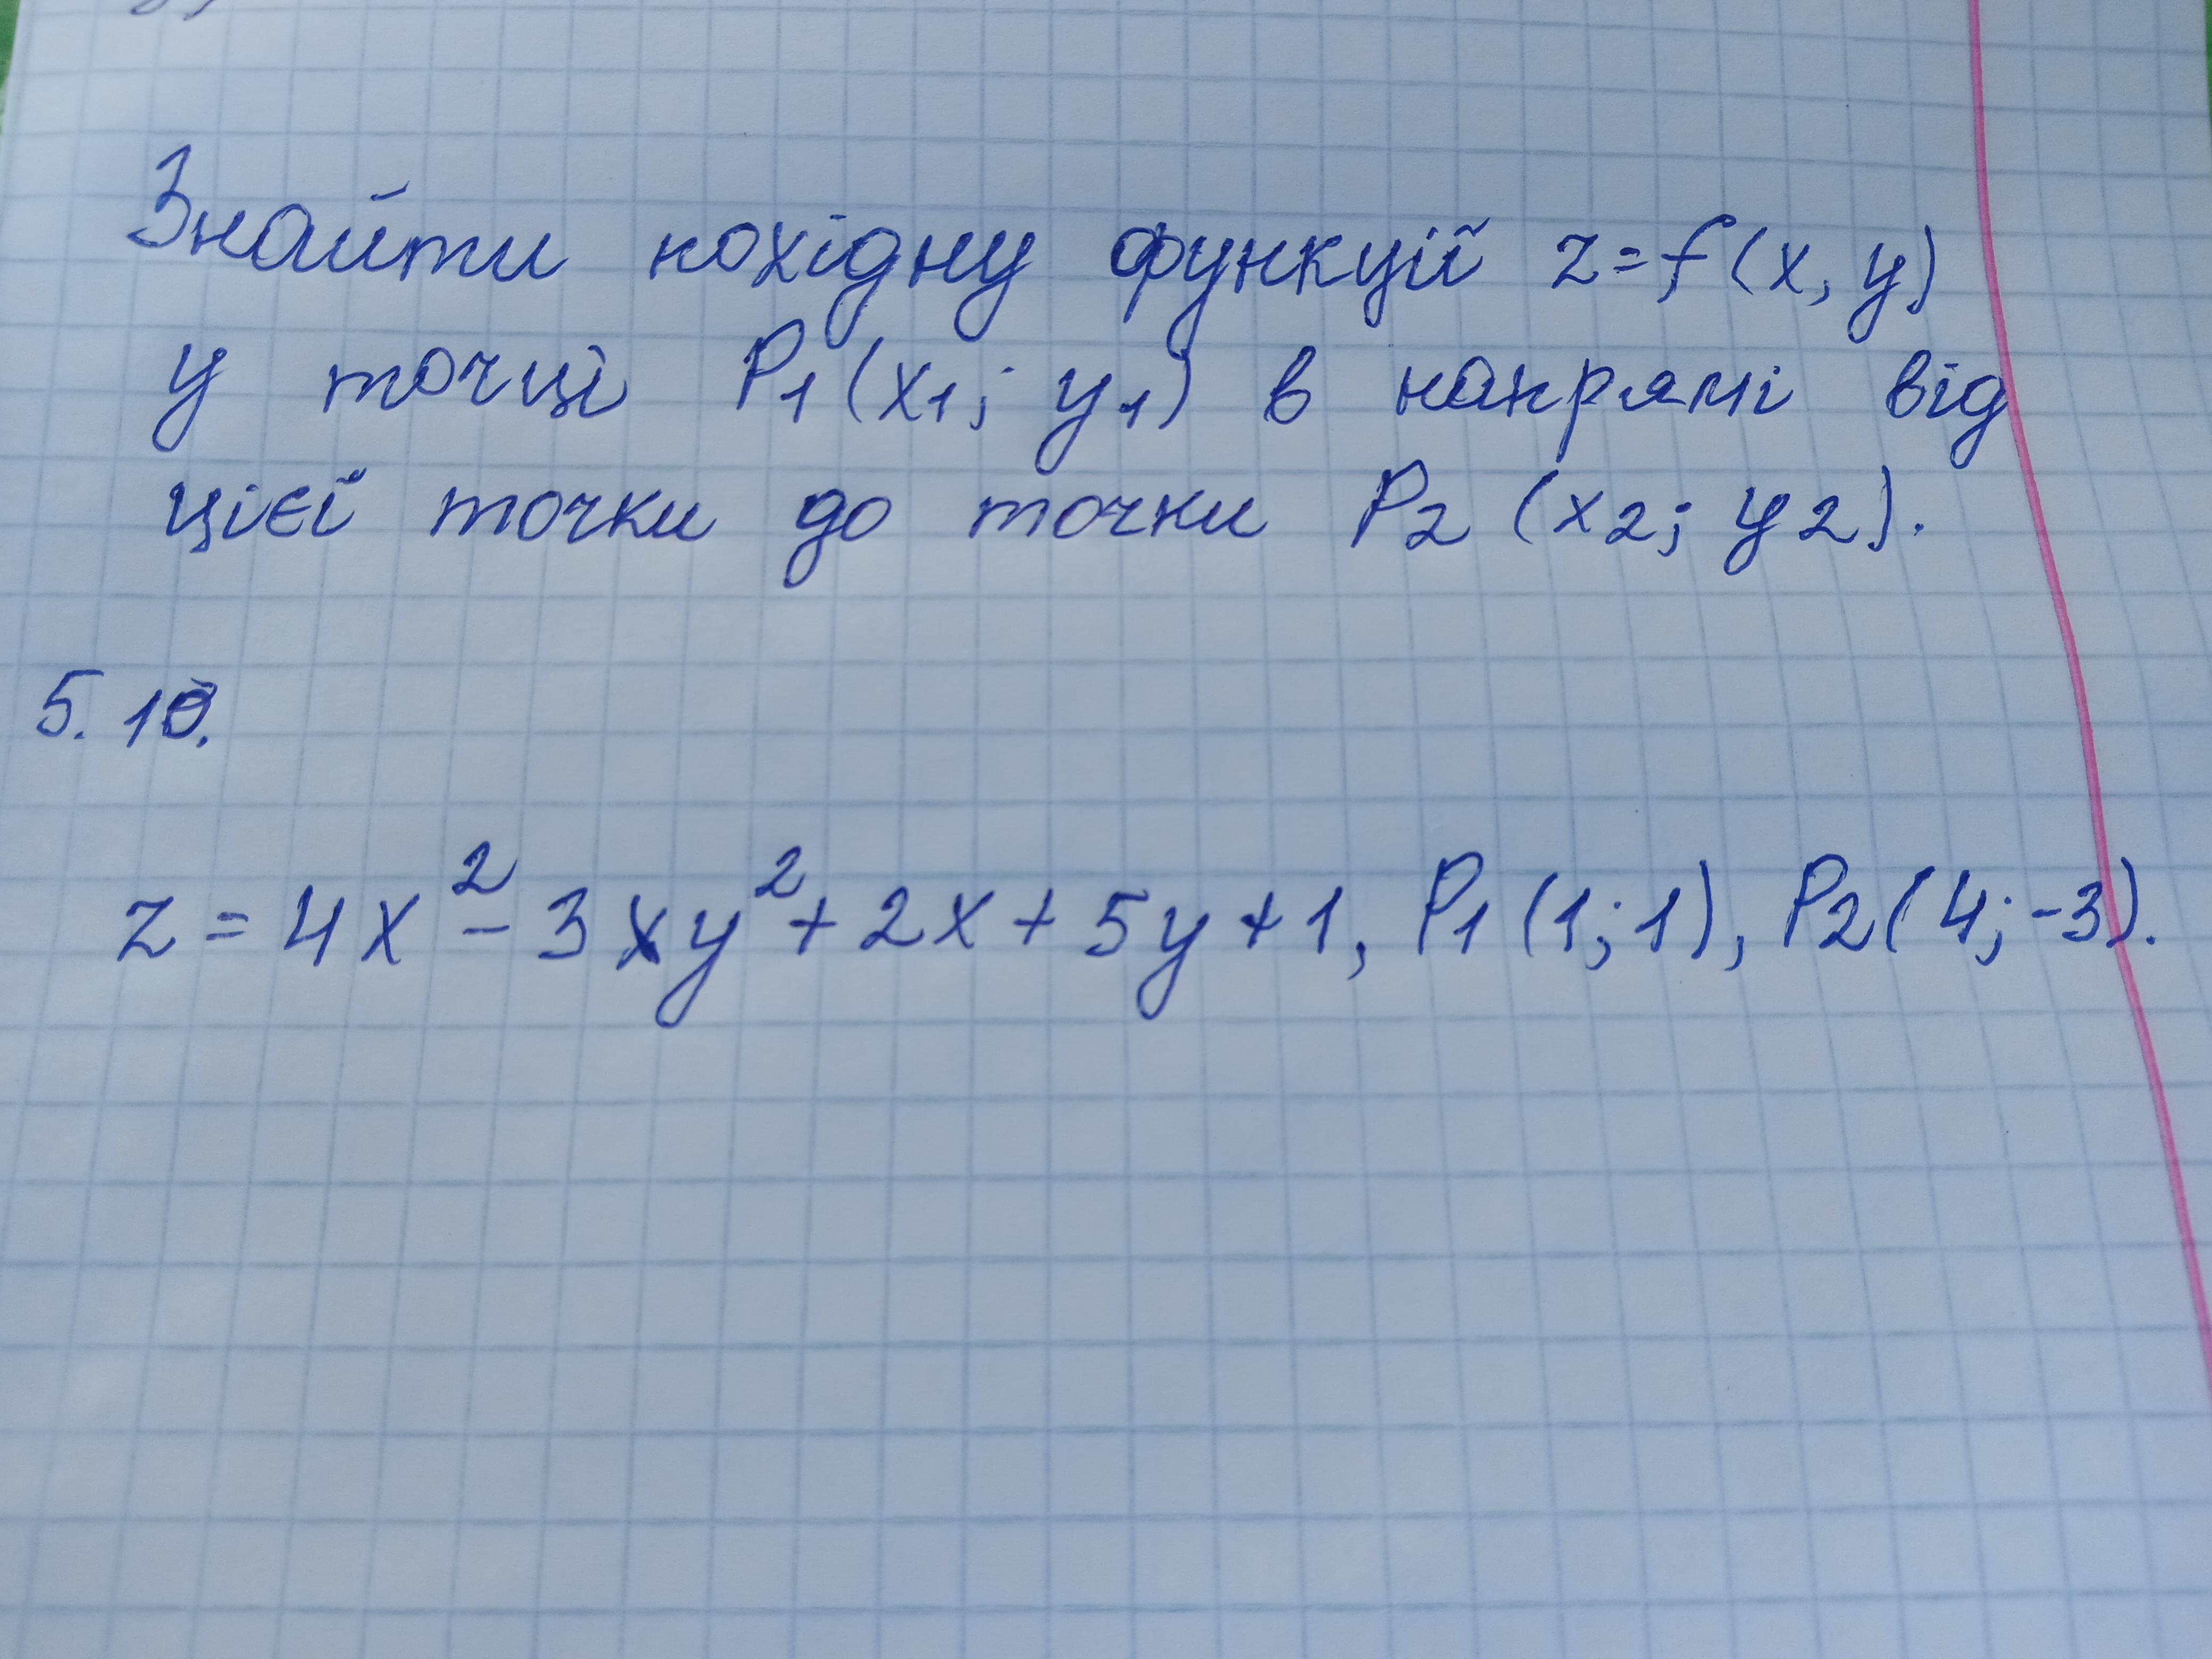 Знайти похідну функції z=f(x, y)
у точці P₁(x₁; y₁) в напрямі від
цієї точки до точки P₂ (x₂; y₂).
5.10.
z = 4x² - 3xy² + 2x + 5y + 1, P₁ (1; 1), P₂ (4; -3).